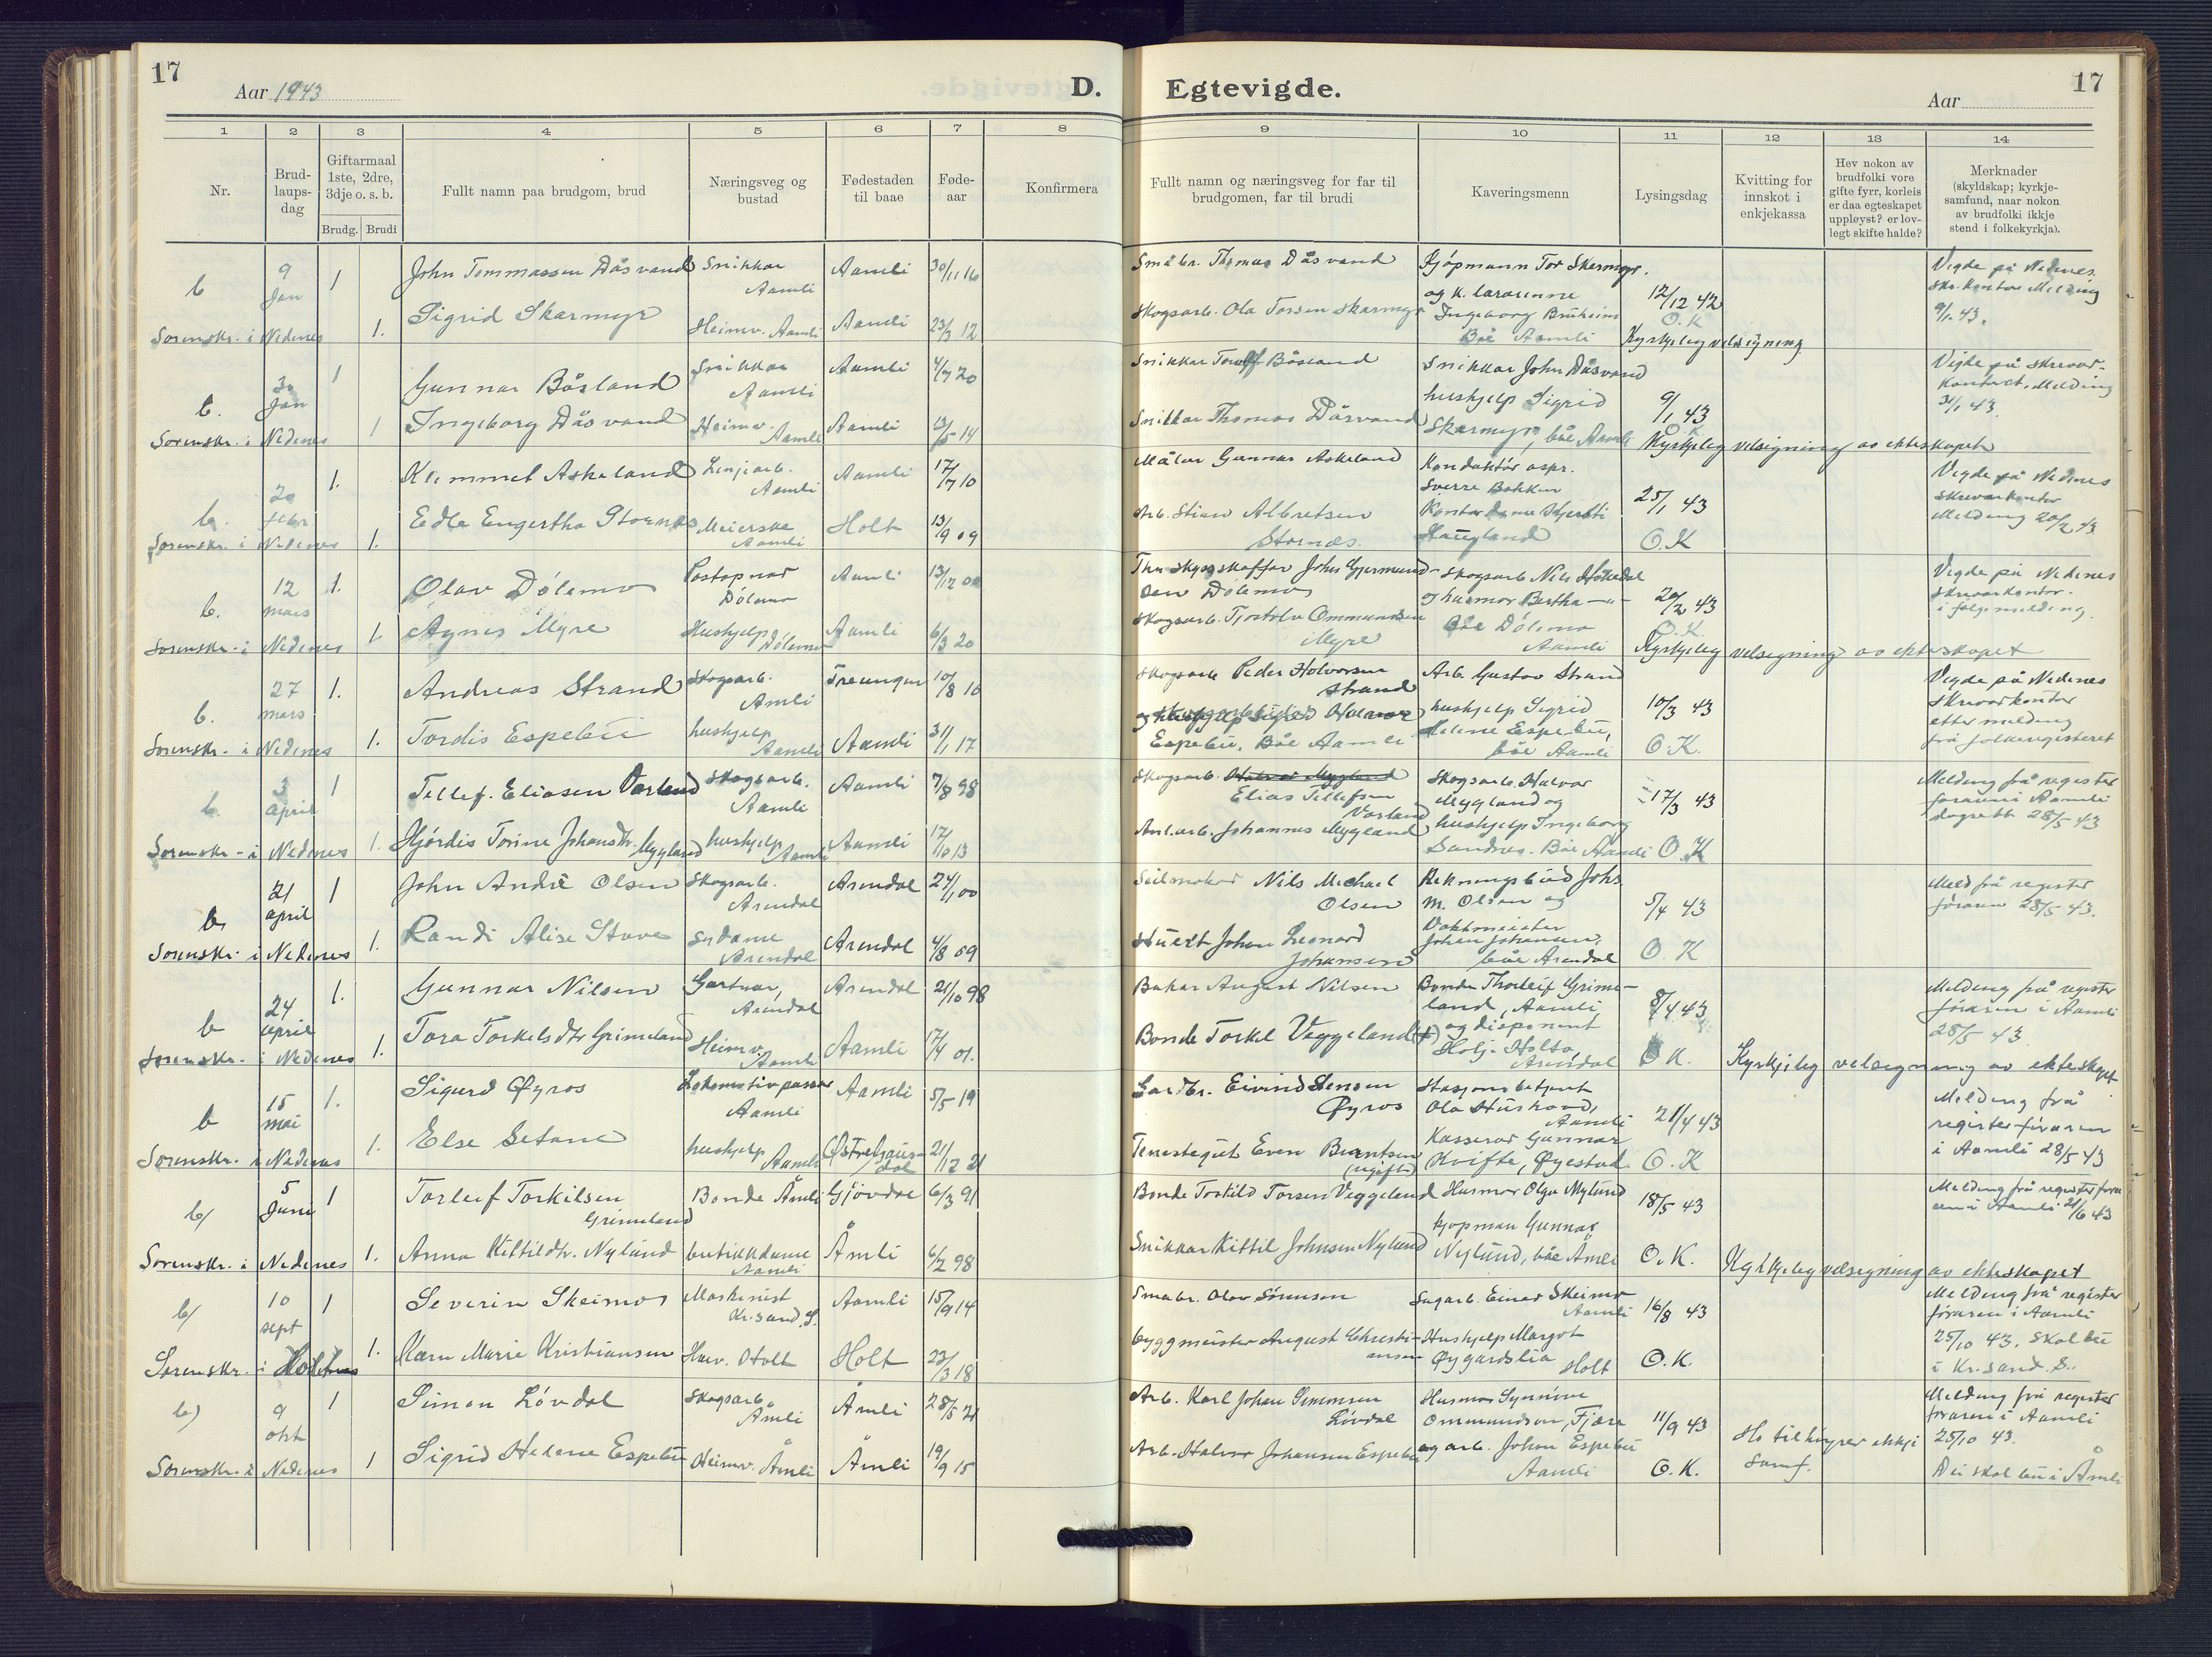 17
Aar 1943
D.
Egtevigde.
Aar
17
1 2 3 4 5 6 7 8 9 10 11 12 13 14
Nr.
Brud-
laups-
dag
Giftarmaal
1ste, 2dre,
3dje o. s. b.
Brudg. Brudi
Fullt namn paa brudgom, brud
Næringsveg og
bustad
Fødestaden
til baae
Føde-
aar
Konfirmera
Fullt namn og næringsveg for far til
brudgomen, far til brudi
Kaveringsmenn
Lysingsdag
Kvitting for
innskot i
enkjekassa
Hev nokon av
brudfolki vore
gifte fyrr, korleis
er daa egteskapet
uppløyst? er lov-
legt skifte halde?
Merknader
(skyldskap; kyrkje-
samfund, naar nokon
av brudfolki ikkje
stend i folkekyrkja).
b 9 Jan 1 John Tommassen Dåsvand Snikkar Aamli Aamli 30/11 16
Småbr. Thomas Dåsvand
Kjøpmann Tor Skarmyr.
og k. lararinne
Ingeborg Bruheim
Båe Aamli
12/12 42
O.K
Vigde på Nedenes
skr.kontor Melding
9/1. 43.
Sorenskr. i Nedenes 1. Sigrid Skarmyr Heimv. Aamli Aamli 23/3 12
Skogsarb. Ola Torsen Skarmyr
Kyrkjeleg velsigning
b. 30 Jan 1 Gunnar Båsland Snikkar Aamli Aamli 4/7 20
Snikkar Torolf Båsland
Snikkar John Dåsvand
hushjelp Sigrid
Skarmyr, båe Aamli
9/1 43
O K
Vigde på skrivar-
kontoret. Melding
31/1 43.
Sorenskr. i Nedenes 1 Ingeborg Dåsvand Heimv. Aamli Aamli 13/5 14
Snikkar Thomas Dåsvand
Kyrkjeleg velsigning av ekteskapet
b. 20 febr 1. Klemmet Askeland Linjearb. Aamli Aamli 17/7 10
Målar Gunnar Askeland
Konduktør aspr.
Sverre Bakken
Kontordame Kjersti
Haugland
25/1 43
O.K
Vigde på Nedenes
skrivarkontor
Melding 20/2 43
Sorenskr. i Nedenes 1. Edle Engertha Stornes Meierske Aamli Holt 13/9 09
Arb. Stian Albretsen
Stornes.
b. 12 mars 1. Olav Dølemo Postopnar Dølemo Aamli 13/12
Thv. skysskaffar John Gjermund-
sen Dølemo
Skogsarb. Nils Hökedal
og husmor Bertha —"—
båe Dølemo
Aamli
20/2 43
O.K.
Vigde på Nedenes
skrivarkontor.
i følg. melding.
Sorenskr. i Nedenes 1 Agnes Myre Hushjelp Dølemo Aamli 6/3 20
Skogsarb. Tjostolv Ommundsen
Myre
Kyrkjeleg velsigning av ekteskapet
b. 27 mars 1. Andreas Strand Skogsarb. Amli Treungen 10/8 10
Skogsarb Peder Halvorsen
Strand
Arb. Gustav Strand
hushjelp Sigrid
Helene Espebu,
båe Aamli
10/3 43
O.K.
Vigde på Nedenes
Skrivarkontor
etter melding
frå folkeregisteret
Sorenskr. i Nedenes 1. Tordis Espebu hushjelp Aamli Aamli 31/1 17
Halvor
Espebu, Båe Aamli
b 3 april 1 Tellef. Eliasen Varland Skogsarb. Aamli Aamli 7/8 98
Skogsarb. Halvor Mygland
Elias Tellefsen
Varland
Skogsarb. Halvor
Mygland og
hushjelp Ingeborg
Sandnes. Båe Aamli
17/3 43
O.K
Melding frå register
føraren i Aamli
dagsett 28/5 43
Sorenskr. i Nedenes 1. Hjørdis Torine Johansdtr. Mygland hushjelp Aamli Aamli 17/10 13
Anl.arb. Johannes Mygland
b. 21 april 1 John André Olsen Skogsarb. Arendal Arendal 24/1 00
Seilmakar Nils Michael
Olsen
Rekningsbud Johs.
M. Olsen og
Vaktmeister
Johan Johansen,
båe Arendal
5/4 43
O K
Meld frå register
føraren 28/5 43.
Sorenskr. i Nedenes 1. Randi Alise Stave Sydame Arendal Arendal 4/8 09
Stuert Johan Leonard
Johansen
b 24 april 1. Gunnar Nilsen Gartnar, Arendal Arendal 21/10 98
Bakar August Nilsen
Bonde Thorleif Grime-
land, Aamli
og disponent
Holje Holta,
Arendal
8/4 43
O K.
Melding på register
føraren i Aamli
28/5 43.
Sorenskr. i Nedenes 1. Tora Torkelsdtr Grimeland Heimv. Aamli Aamli 17/4 01.
Bonde Torkel Veggeland (+)
Kyrkjeleg velsigning av ekteskapet
b 15 mai 1. Sigurd Øyros Lokomotivpusser Aamli Aamli 5/5 19
Gardbr. Eivind Jensen
Øyros
Stasjonsbetjent
Ola Huskova,
Aamli
Kasserar Gunnar
Kvifte, Øyestad.
21/4 43
O.K
Melding frå
register-føraren
i Aamli 28/5 43
Sorenskr. i Nedenes 1. Else Setane hushjelp Aamli Østre Gaus-
dal 21/12 21
Tenestegut Even Berntsen
(ugift)
b/ 5 Juni 1 Torleif Torkilsen
Grimeland Bonde Åmli Gjövdal 6/3 91
Bonde Torkild Torsen Veggeland
Husmor Olga Nylund
kjøpman Gunnar
Nylund, båe Åmli
18/5 43
O.K.
Melding frå register føra
ren i Aamli 21/6 43
Sorenskr. i Nedenes 1. Anna Kittildtr. Nylund butikkdame Aamli Åmli 6/2 98
Snikkar Kittil Johnsen Nylund
Kyrkjeleg velsigning av ekteskapet
b/ 10 sept 1 Severin Skeimo Maskinist Kr.sand. S. Aamli 15/9 14
Småbr. Olav Sørensen
Sagarb. Einar Skeimo
Aamli
Hushjelp Margot
Øygardslia Holt
16/8 43
O.K.
Melding frå register
føraren i Aamli
25/10 43. Skal bu
i Kr.sand. S..
Sorenskr. i Holt 1. Karen Marie Kristiansen Heimv. Holt Holt 23/3 18
byggmeister August Christi-
ansen
b) 9 okt 1 Simon Løvdal Skogsarb. Åmli Åmli 28/5 21
Arb. Karl Johan Simonsen
Løvdal
Husmor Synnöve
Ommundsen, Fjære
og arb. Johan Espebu
Aamli
11/9 43
O.K.
Ho tilhøyrer ikkje
Samf.
Melding frå register
føraren i Aamli
25/10 43.
Dei skal bu i Åmli
Sorenskr. i Nedenes 1 Sigrid Helene Espebu Heimv. Åmli Åmli 19/9 15
Arb. Halvor Johansen Espebu